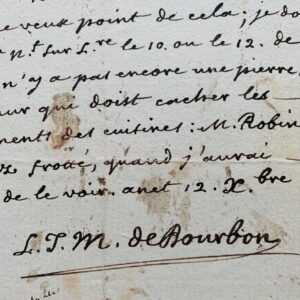 e veux point de cela; je do
n.t sur L.re le 10. ou le 12. de
n'y a pas encore une pierre
ur que doist cacher les
ments des cuisines: M. Robin
z frotté, quand j'aurai
de le voir. anet 12. X.bre
L. J. M. de Bourbon